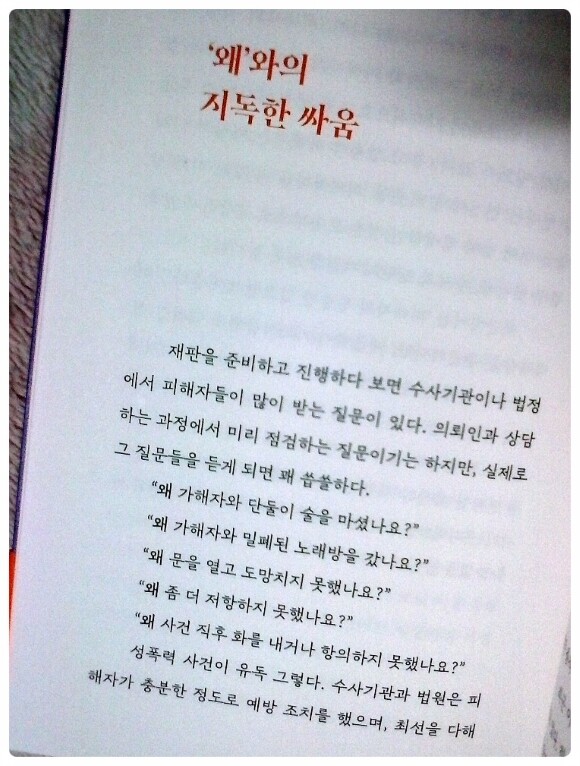 ‘왜’와의
지독한 싸움
재판을 준비하고 진행하다 보면 수사기관이나 법정
에서 피해자들이 많이 받는 질문이 있다. 의뢰인과 상담
하는 과정에서 미리 점검하는 질문이기는 하지만, 실제로
그 질문들을 듣게 되면 꽤 씁쓸하다.
“왜 가해자와 단둘이 술을 마셨나요?”
“왜 가해자와 밀폐된 노래방을 갔나요?”
“왜 문을 열고 도망치지 못했나요?”
“왜 좀 더 저항하지 못했나요?”
“왜 사건 직후 화를 내거나 항의하지 못했나요?”
성폭력 사건이 유독 그렇다. 수사기관과 법원은 피
해자가 충분한 정도로 예방 조치를 했으며, 최선을 다해